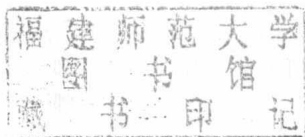 福建师范大学
圖书馆
藏书印记